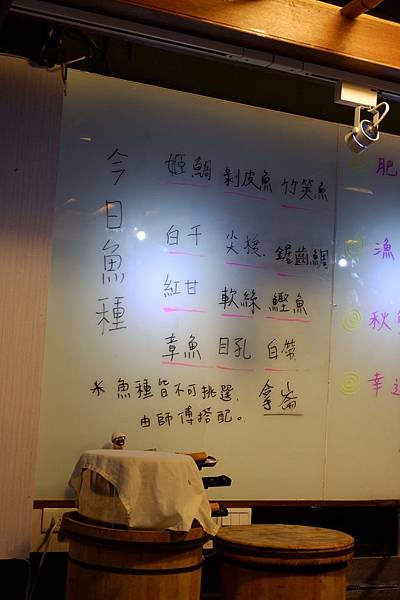 今日魚種
姬鯛 剝皮魚 竹筴魚
白干 尖梭 鋸齒鯛
紅甘 軟絲 鰹魚
章魚 目孔 白帶
※魚種皆不可挑選、
由師傅搭配。
肥
漁
秋
幸